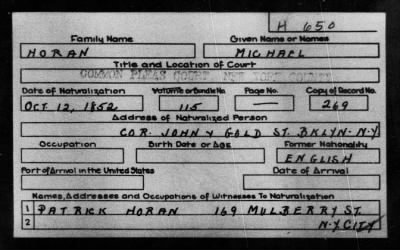 H 650
Family Name Given Name or Names
HORAN MICHAEL
Title and Location of Court
COMMON PLEAS COURT, NEW YORK COUNTY
Date of Naturalization Volume or Bundle No. Page No. Copy of Record No.
OCT. 12, 1852 115 — 269
Address of Naturalized Person
COR. JOHN & GOLD ST. BKLYN. N.Y.
Occupation Birth Date or Age Former Nationality
ENGLISH
Port of Arrival in the United States Date of Arrival
Names, Addresses and Occupations of Witnesses To Naturalization
1 PATRICK HORAN 169 MULBERRY ST.
2 N.Y. CITY